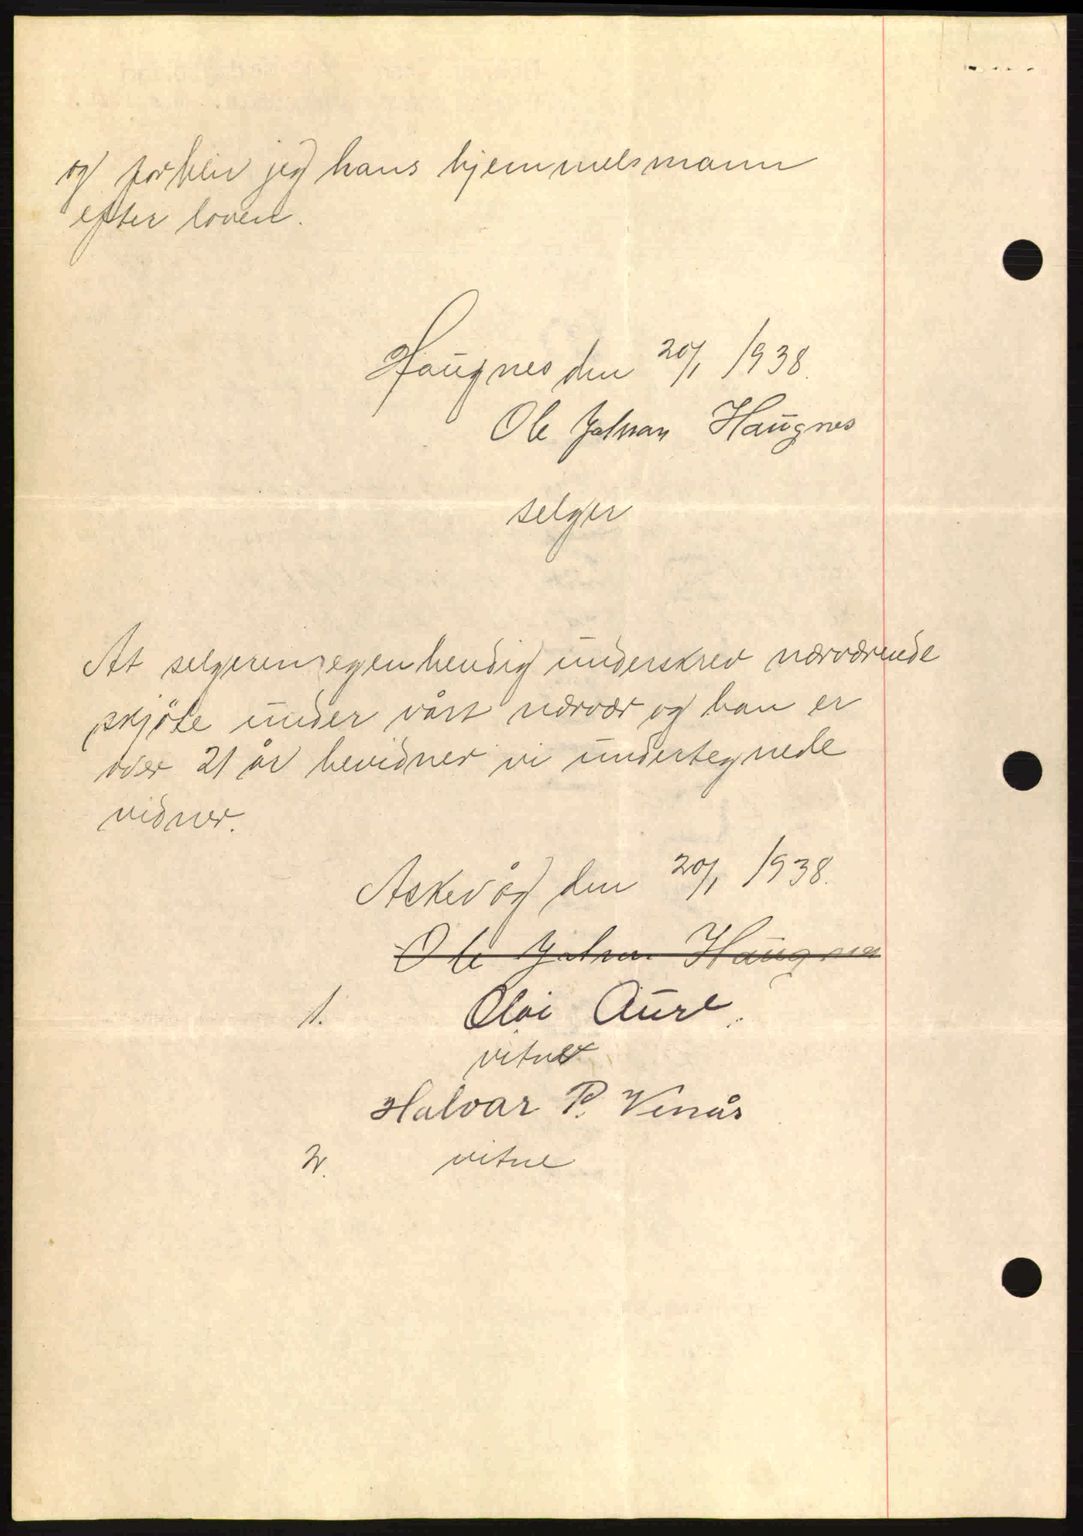 og forblir jeg hans hjemmelsmann
efter loven.
Haugnes den 20/1 1938.
Ole Johan Haugnes
selger
At selgeren egenhendig underskrev nærværende
skjöte under vårt nærvær og han er
over 21 år bevidner vi undertegnede
vidner.
Askevåg den 20/1 1938.
Ole Johan Haugnes
1. Olai Aure.
vitne
Halvar P. Venås
2. vitne